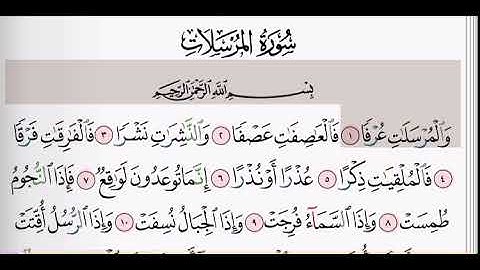 سُورَةُ المُرْسَلَات
بِسْمِ اللَّهِ الرَّحْمَٰنِ الرَّحِيمِ
وَالْمُرْسَلَٰتِ عُرْفًا ١ فَالْعَٰصِفَٰتِ عَصْفًا ٢ وَالنَّٰشِرَٰتِ نَشْرًا ٣ فَالْفَٰرِقَٰتِ فَرْقًا
٤ فَالْمُلْقِيَٰتِ ذِكْرًا ٥ عُذْرًا أَوْ نُذْرًا ٦ إِنَّمَا تُوعَدُونَ لَوَٰقِعٌ ٧ فَإِذَا النُّجُومُ
طُمِسَتْ ٨ وَإِذَا السَّمَآءُ فُرِجَتْ ٩ وَإِذَا الْجِبَالُ نُسِفَتْ ١٠ وَإِذَا الرُّسُلُ أُقِّتَتْ